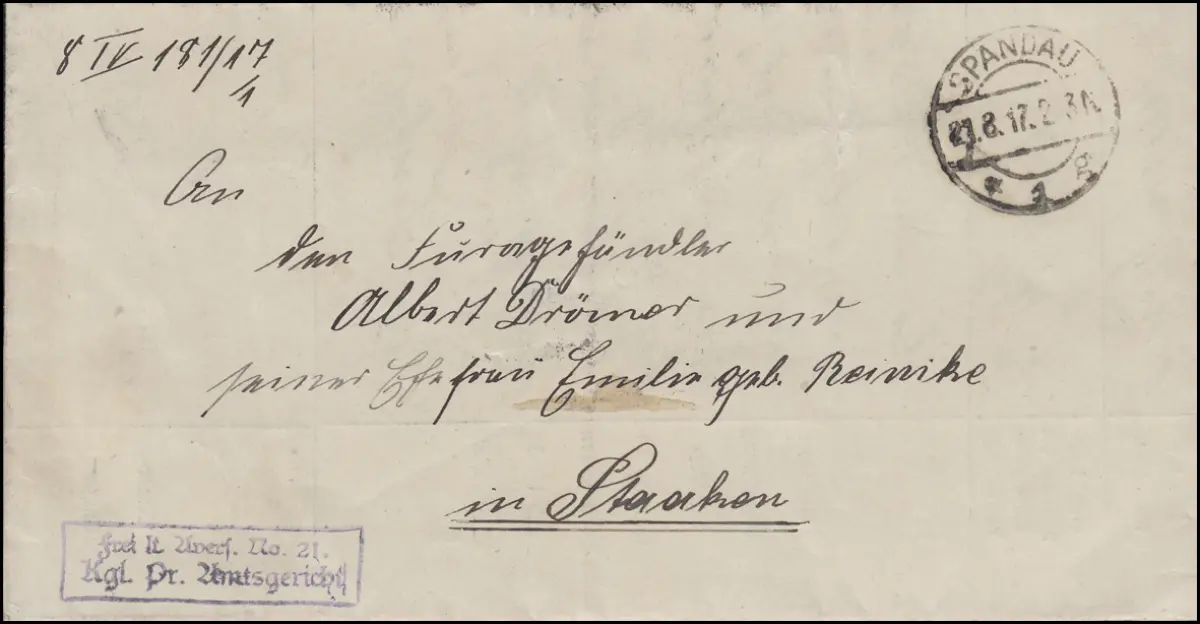 8 IV 181/17
/1
SPANDAU
21.8.17. 2-3 N.
* 1 g
An
den Furagehändler
Albert Drömer und
seiner Ehefrau Emilie geb. Reinike
in Staaken
frei lt. Avers. No. 21.
Kgl. Pr. Amtsgericht